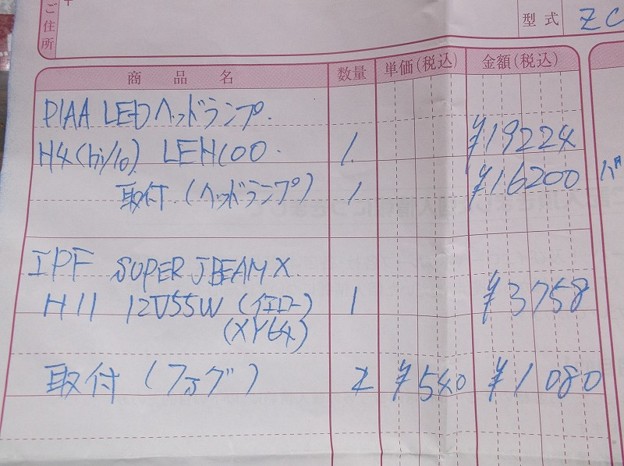 ご住所
型式 ZC
商品名 数量 単価(税込) 金額(税込)
PIAA LEDヘッドランプ
H4(hi/lo) LEH100 1 ¥19224
取付(ヘッドランプ) 1 ¥16200
バ
IPF SUPER J BEAM X
H11 12V55W (イエロー) 1 ¥3758
(XY64)
取付(フォグ) 2 ¥540 ¥1080